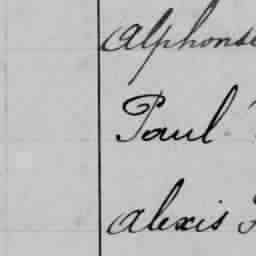 Alphonse
Paul
Alexis